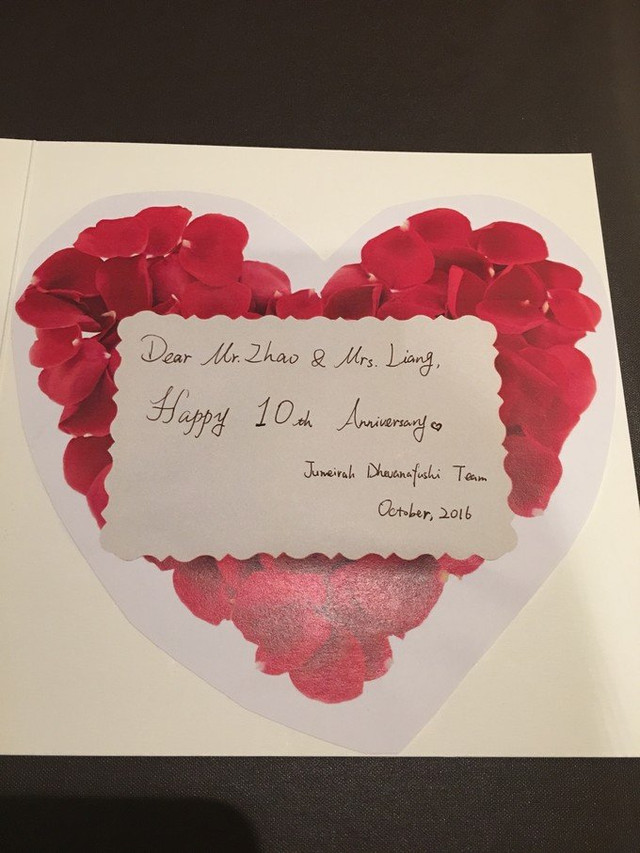 Dear Mr. Zhao & Mrs. Liang,
Happy 10th Anniversary♡
Jumeirah Dhevanafushi Team
October, 2016